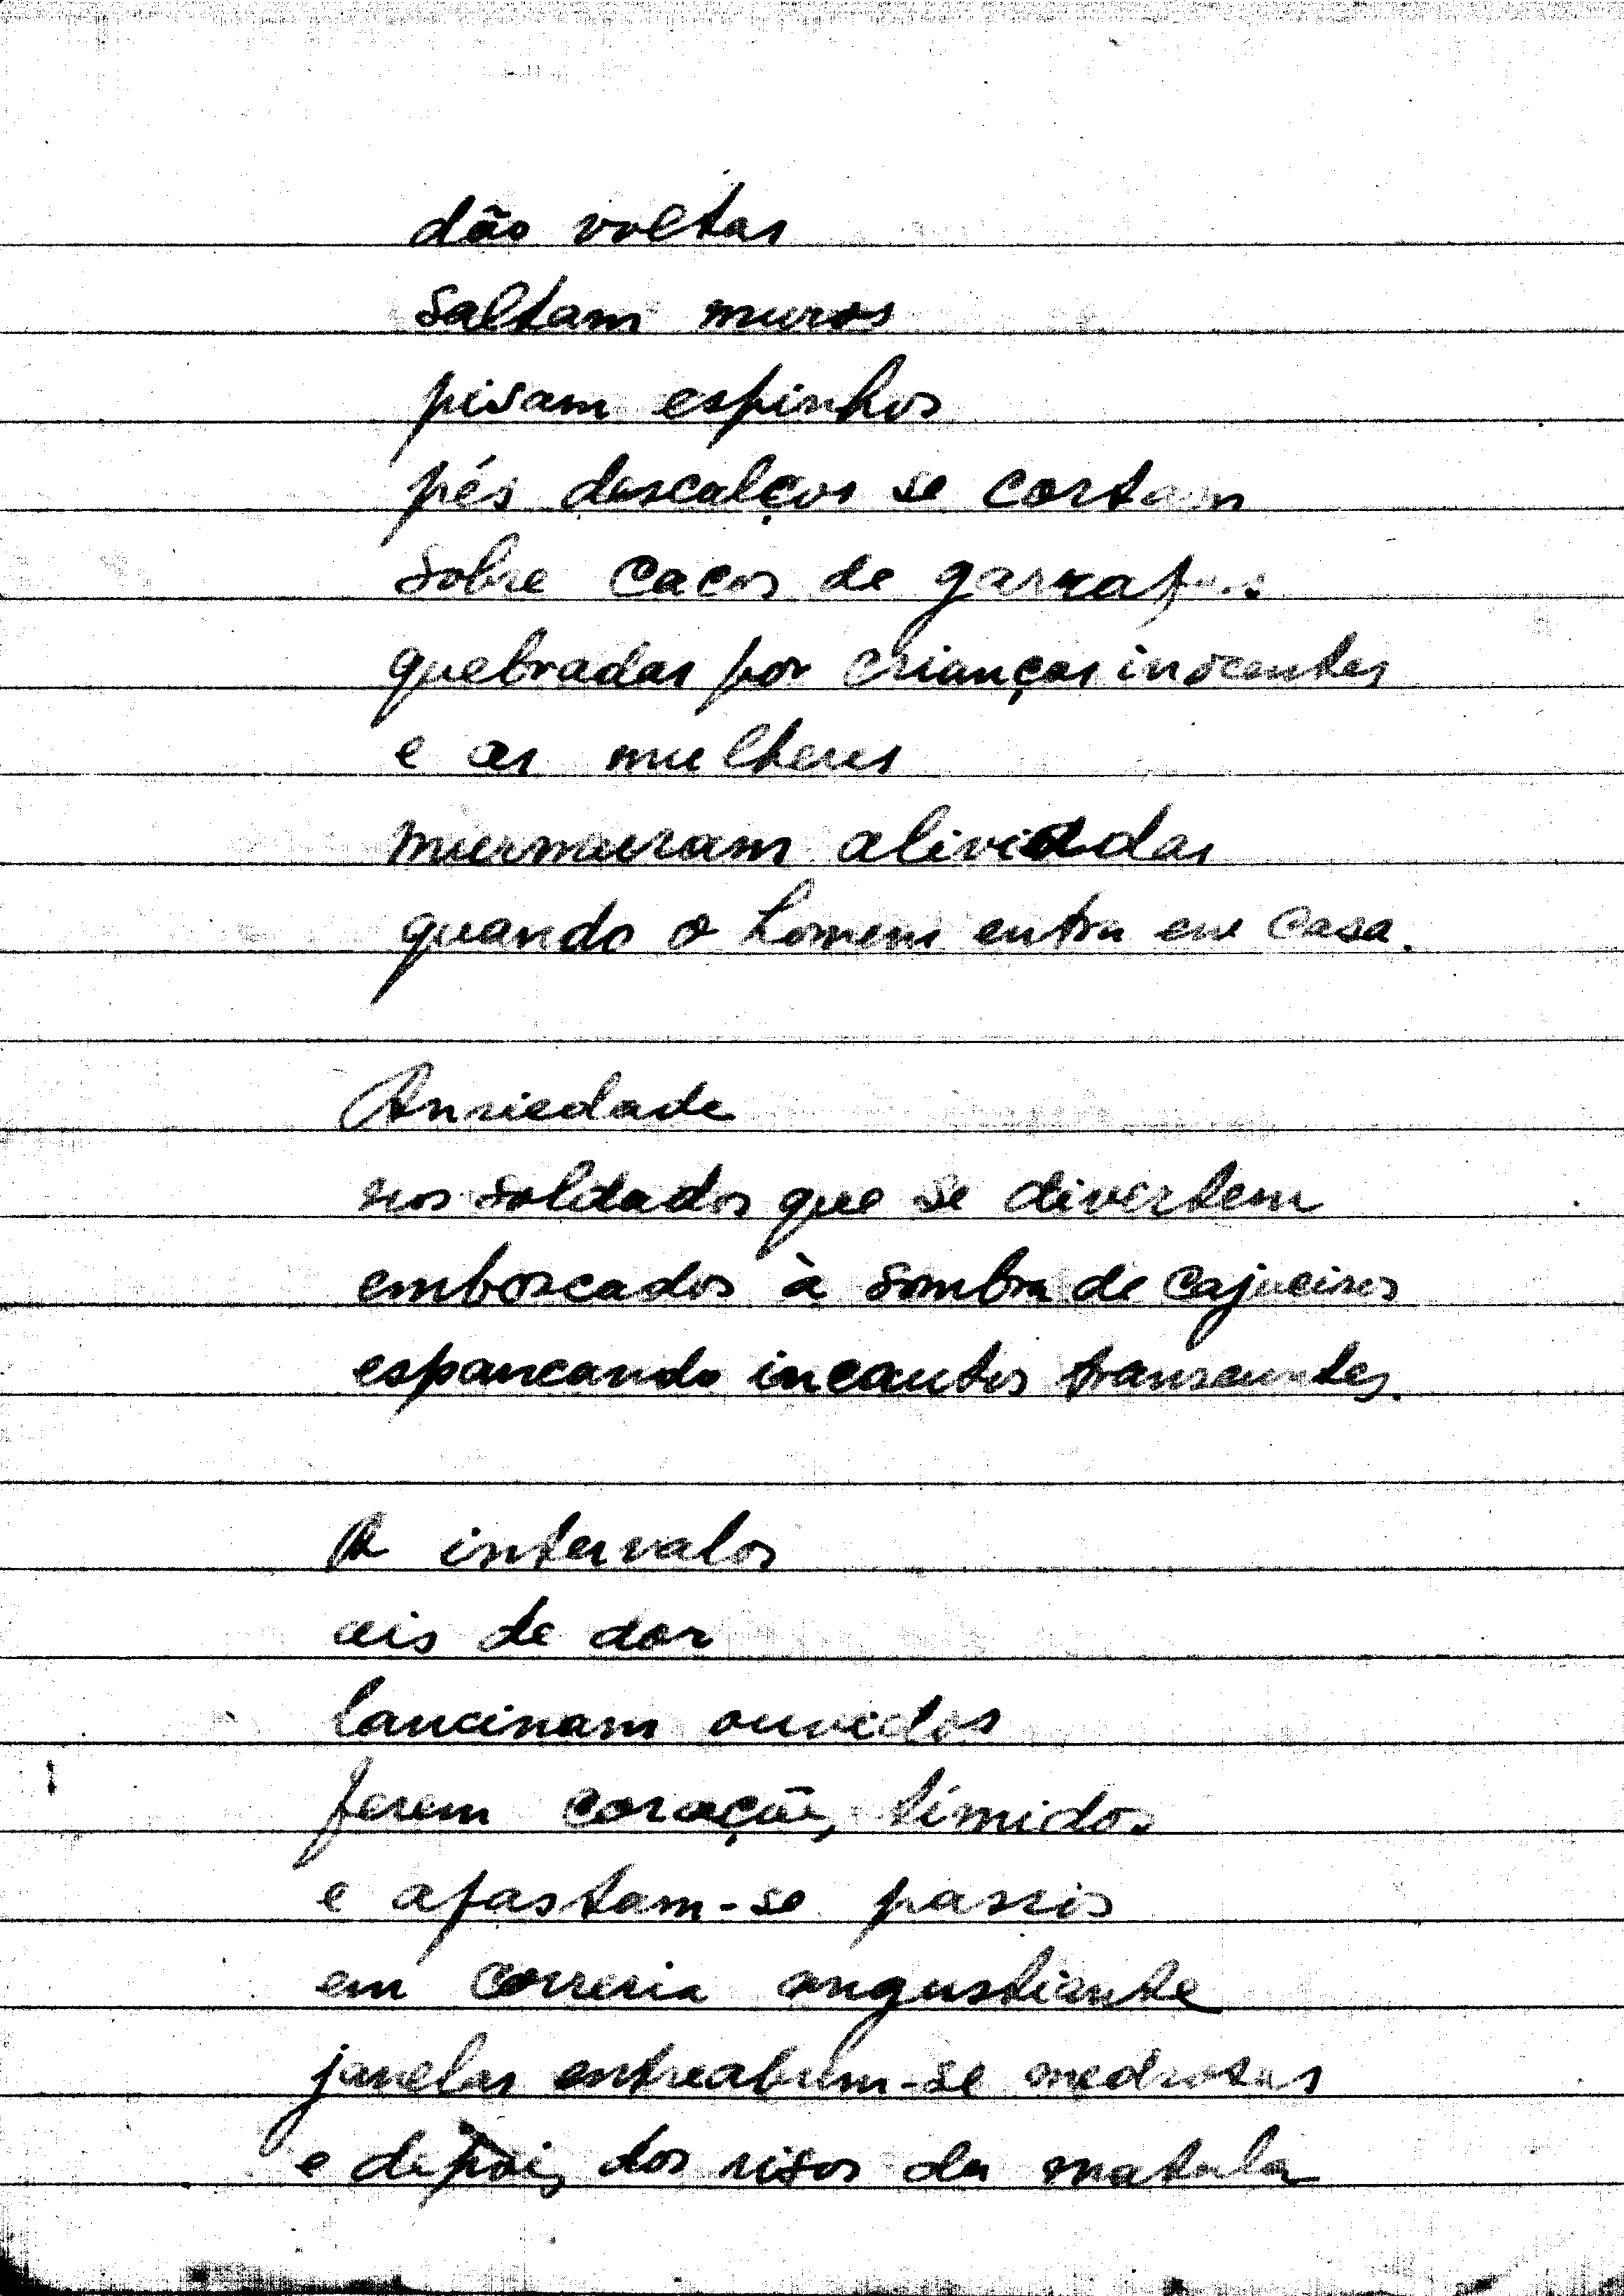 dão voltas
saltam muros
pisam espinhos
pés descalços se cortam
sobre cacos de garrafas
quebradas por crianças inocentes
e as mulheres
murmuram aliviadas
quando o homem entra em casa.
Ansiedade
nos soldados que se divertem
emboscados à sombra de cajueiros
espancando incautos transeuntes.
A intervalos
ais de dor
lancinam ouvidos
ferem corações tímidos
e afastam-se passos
em correria angustiante
janelas entreabrem-se medrosas
e depois dos risos da matula